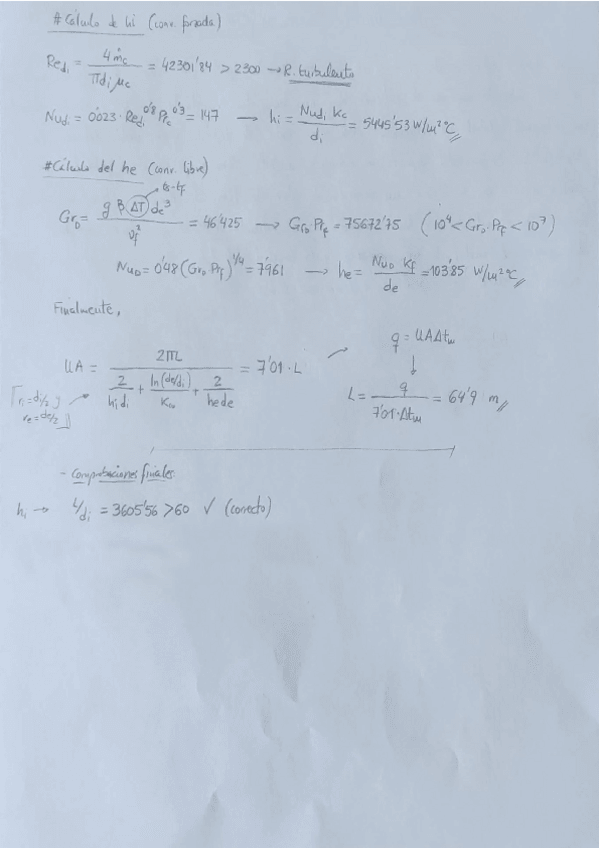 #Cálculo de hi (conv. forzada)
Redi = 4ṁc / πdi μc = 42301'84 > 2300 → R. turbulento
Nudi = 0'023 · Redi^0'8 Prc^0'3 = 147 → hi = Nudi Kc / di = 5445'53 W/m²°C
#Cálculo del he (conv. libre)
ts-tf
GrD = g β ΔT de³ / υf² = 46'425 → GrD·Prf = 75672'75 (10⁴ < GrD·Prf < 10⁷)
NuD = 0'48 (GrD·Prf)^1/4 = 7'961 → he = NuD Kf / de = 103'85 W/m²°C
Finalmente,
UA = 2πL / (2/hidi + ln(de/di)/Kw + 2/hede) = 7'01·L
q = UAΔtm
ri = di/2 ;
re = de/2
L = q / 7'01·Δtm = 64'9 m
- Comprobaciones finales
hi → L/di = 3605'56 > 60 ✓ (correcto)